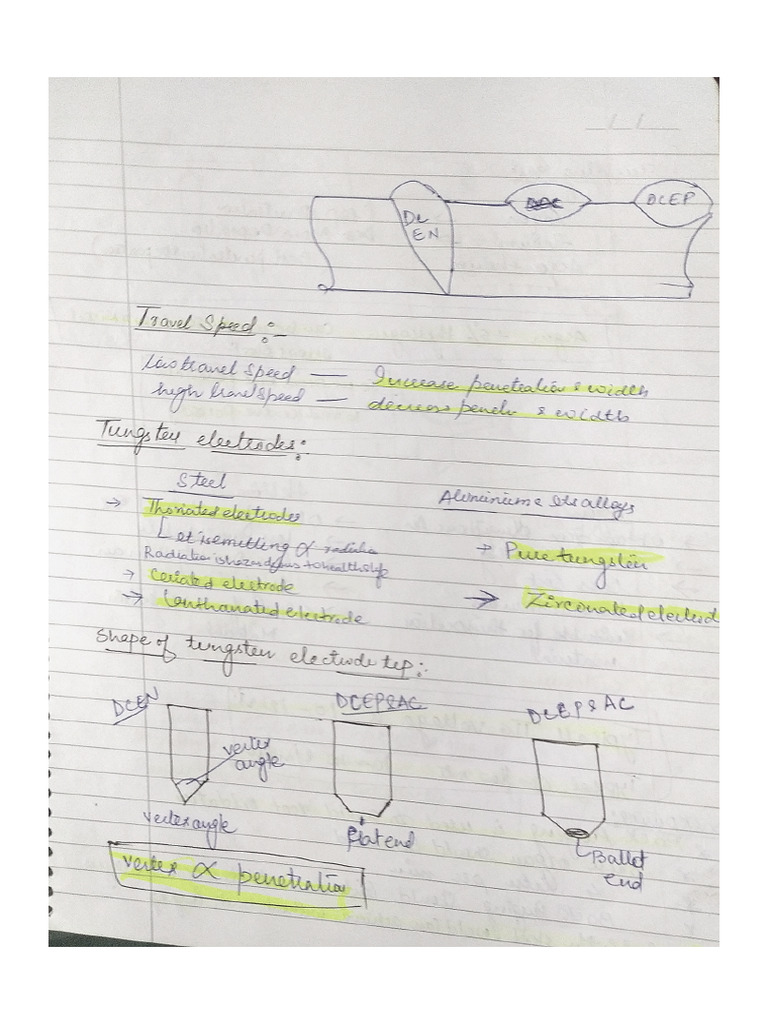 DC EN
AC
DCEP
Travel Speed :-
Low travel speed — Increase penetration & width
high travel speed — decrease penetr & width
Tungsten electrodes :
Steel
Aluminium & Its alloys
→ Thoriated electrodes
→ Pure tungsten
It is emitting α radiation
Radiation is hazardous to health & life
→ Ceriated electrode
→ Lanthanated electrode
→ Zirconated electrod
Shape of tungsten electrode tip :-
DCEN
DCEP & AC
DCEP & AC
vertex angle
vertex angle
Flat end
Balled end
vertex ∝ penetration